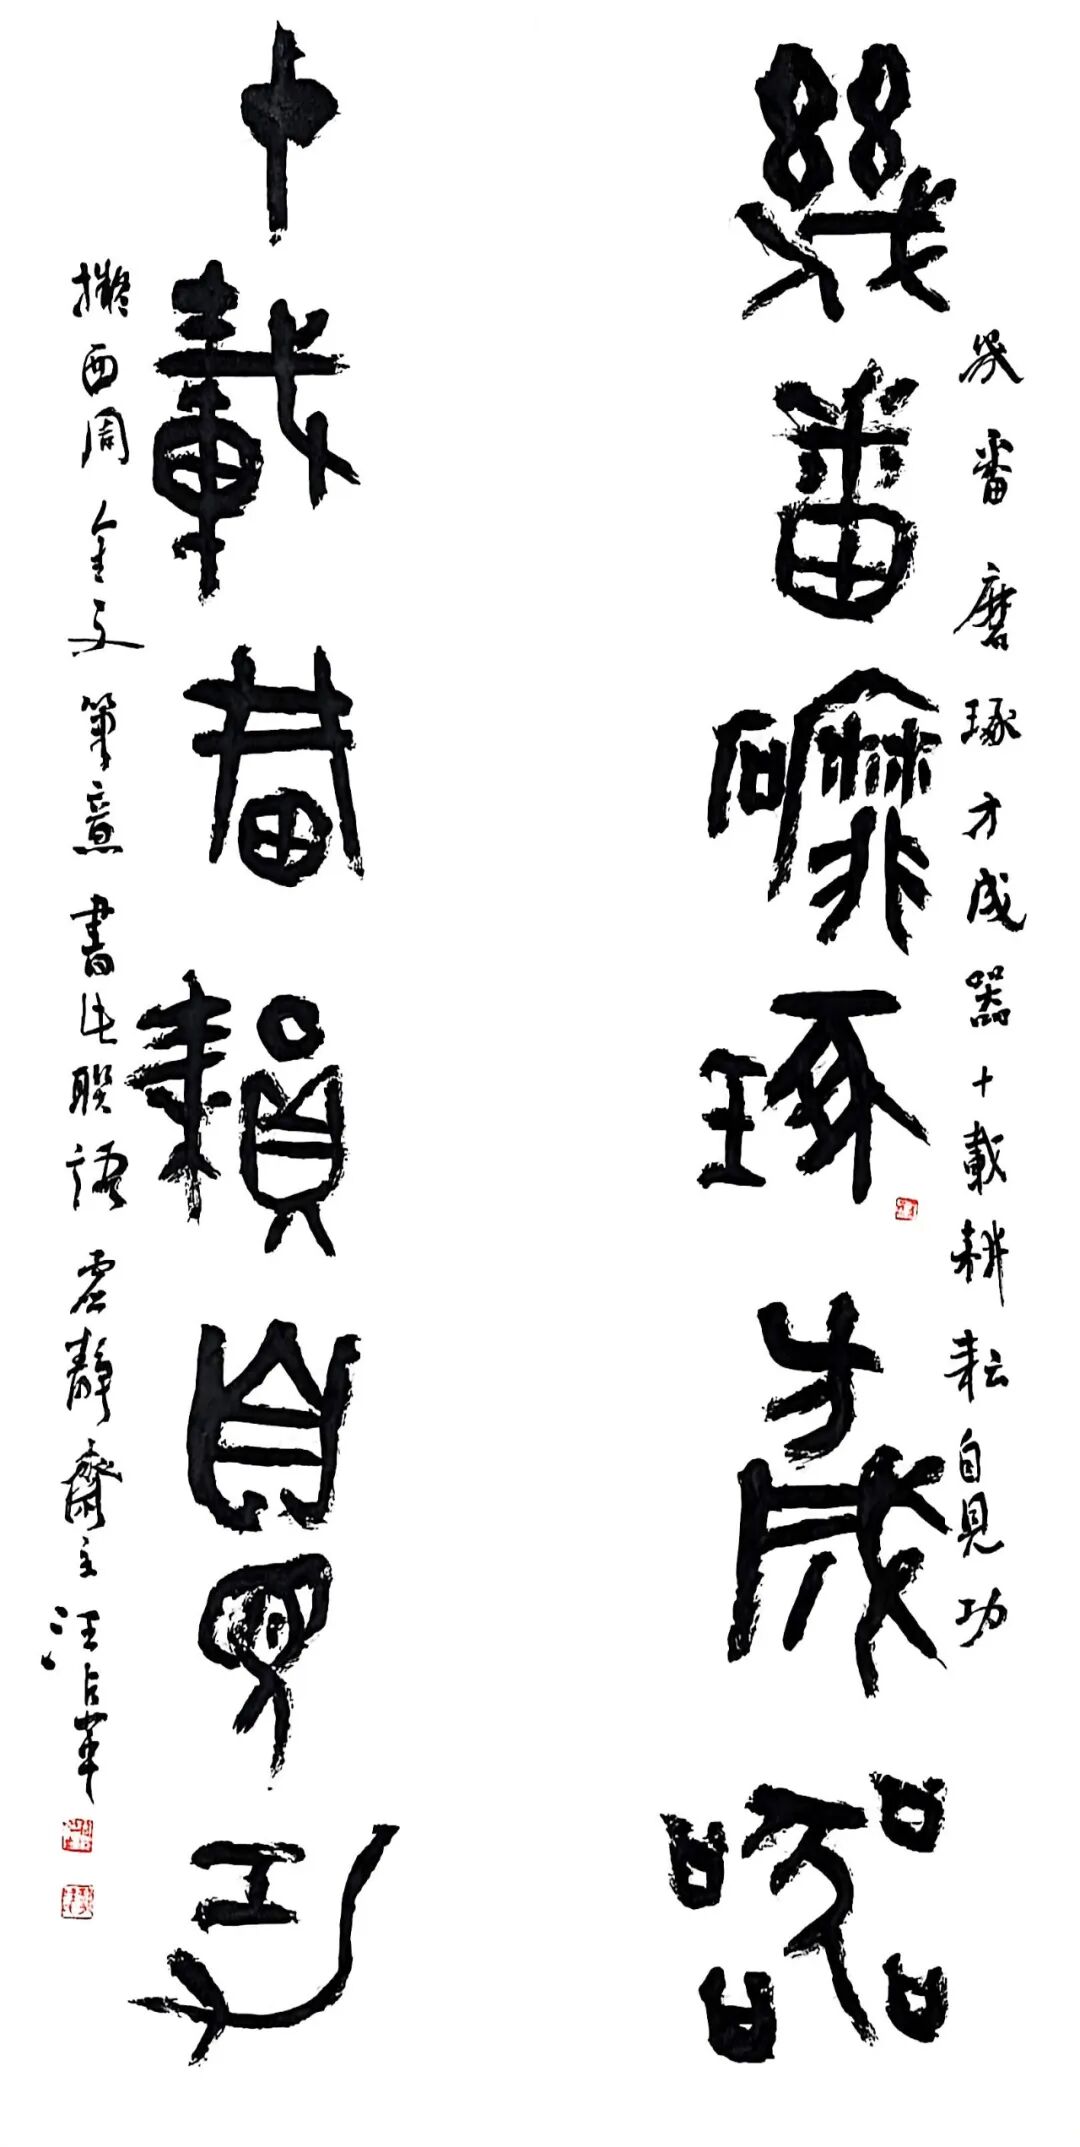 幾番磨琢才成器
十載耕耘自見功
幾番磨琢才成器十載耕耘自見功
擬西周金文筆意書此聯語虛靜齋主汪占革